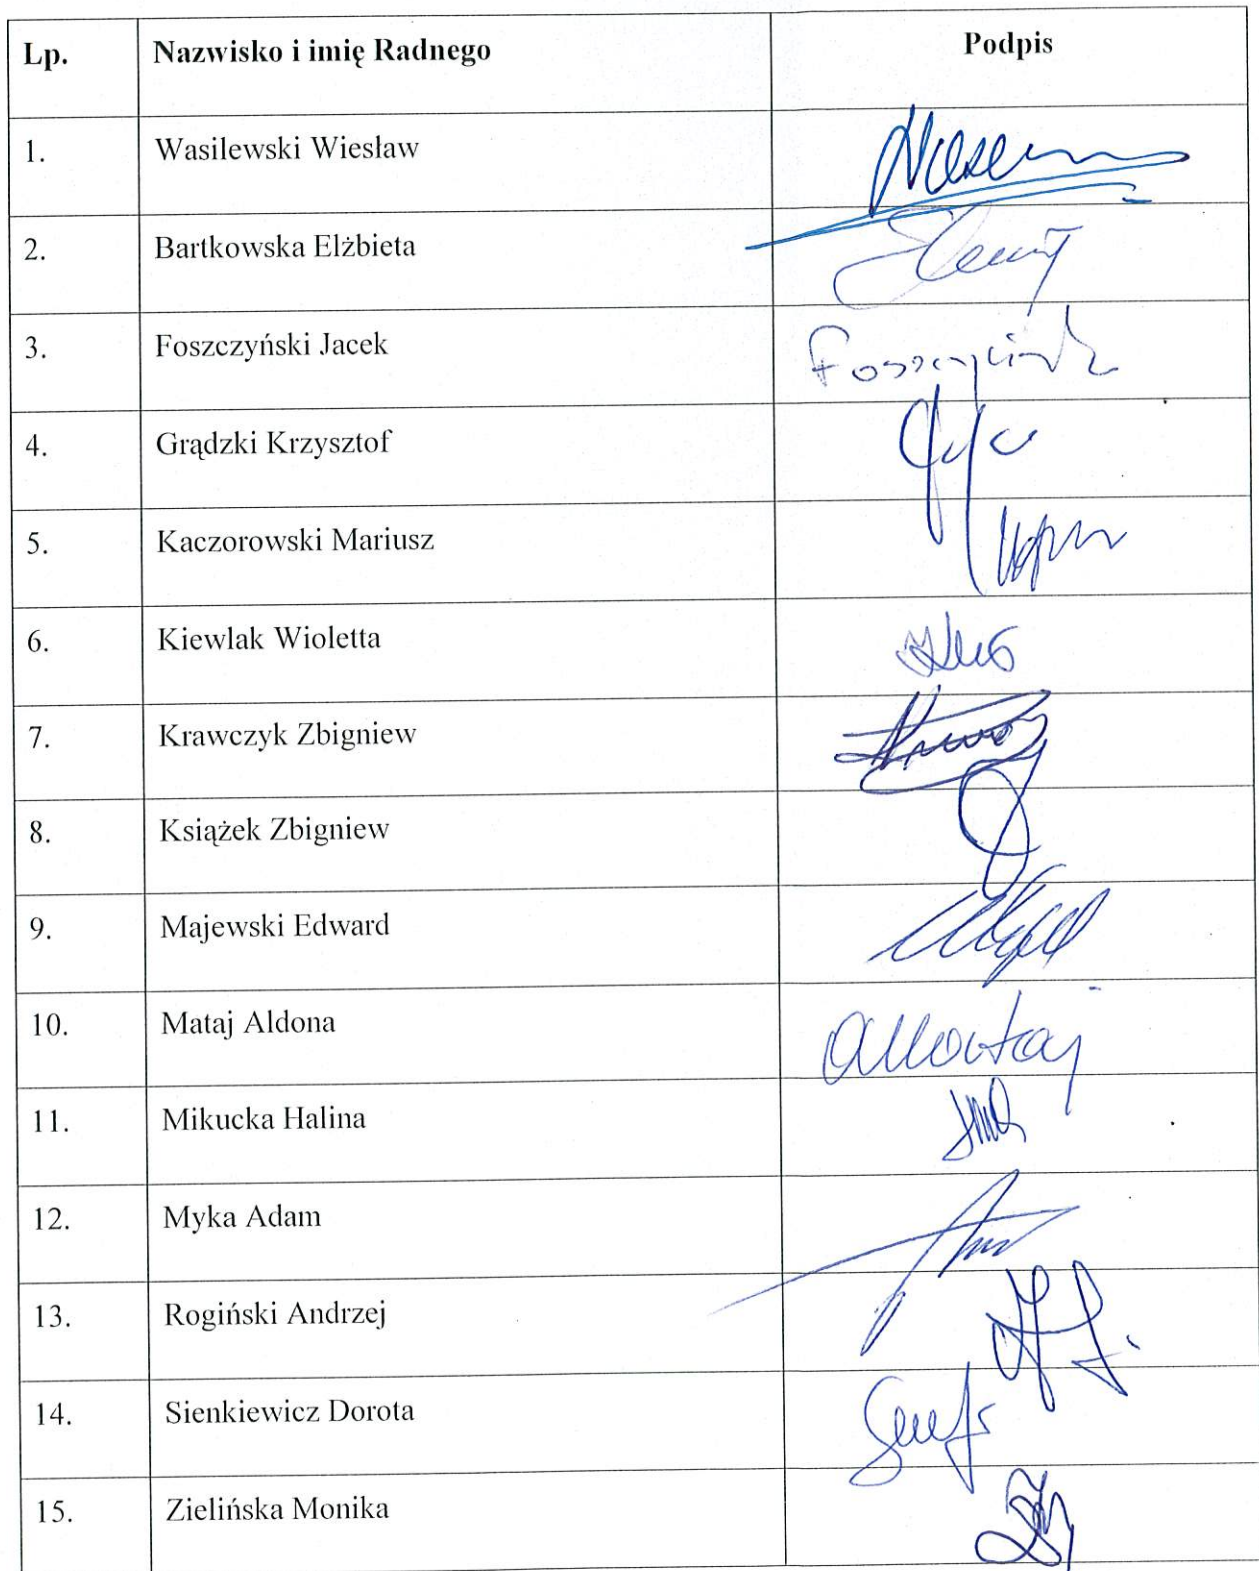 Lp. Nazwisko i imię Radnego Podpis
1. Wasilewski Wiesław
2. Bartkowska Elżbieta
3. Foszczyński Jacek
4. Grądzki Krzysztof
5. Kaczorowski Mariusz
6. Kiewlak Wioletta
7. Krawczyk Zbigniew
8. Książek Zbigniew
9. Majewski Edward
10. Mataj Aldona AMataj
11. Mikucka Halina
12. Myka Adam
13. Rogiński Andrzej
14. Sienkiewicz Dorota
15. Zielińska Monika